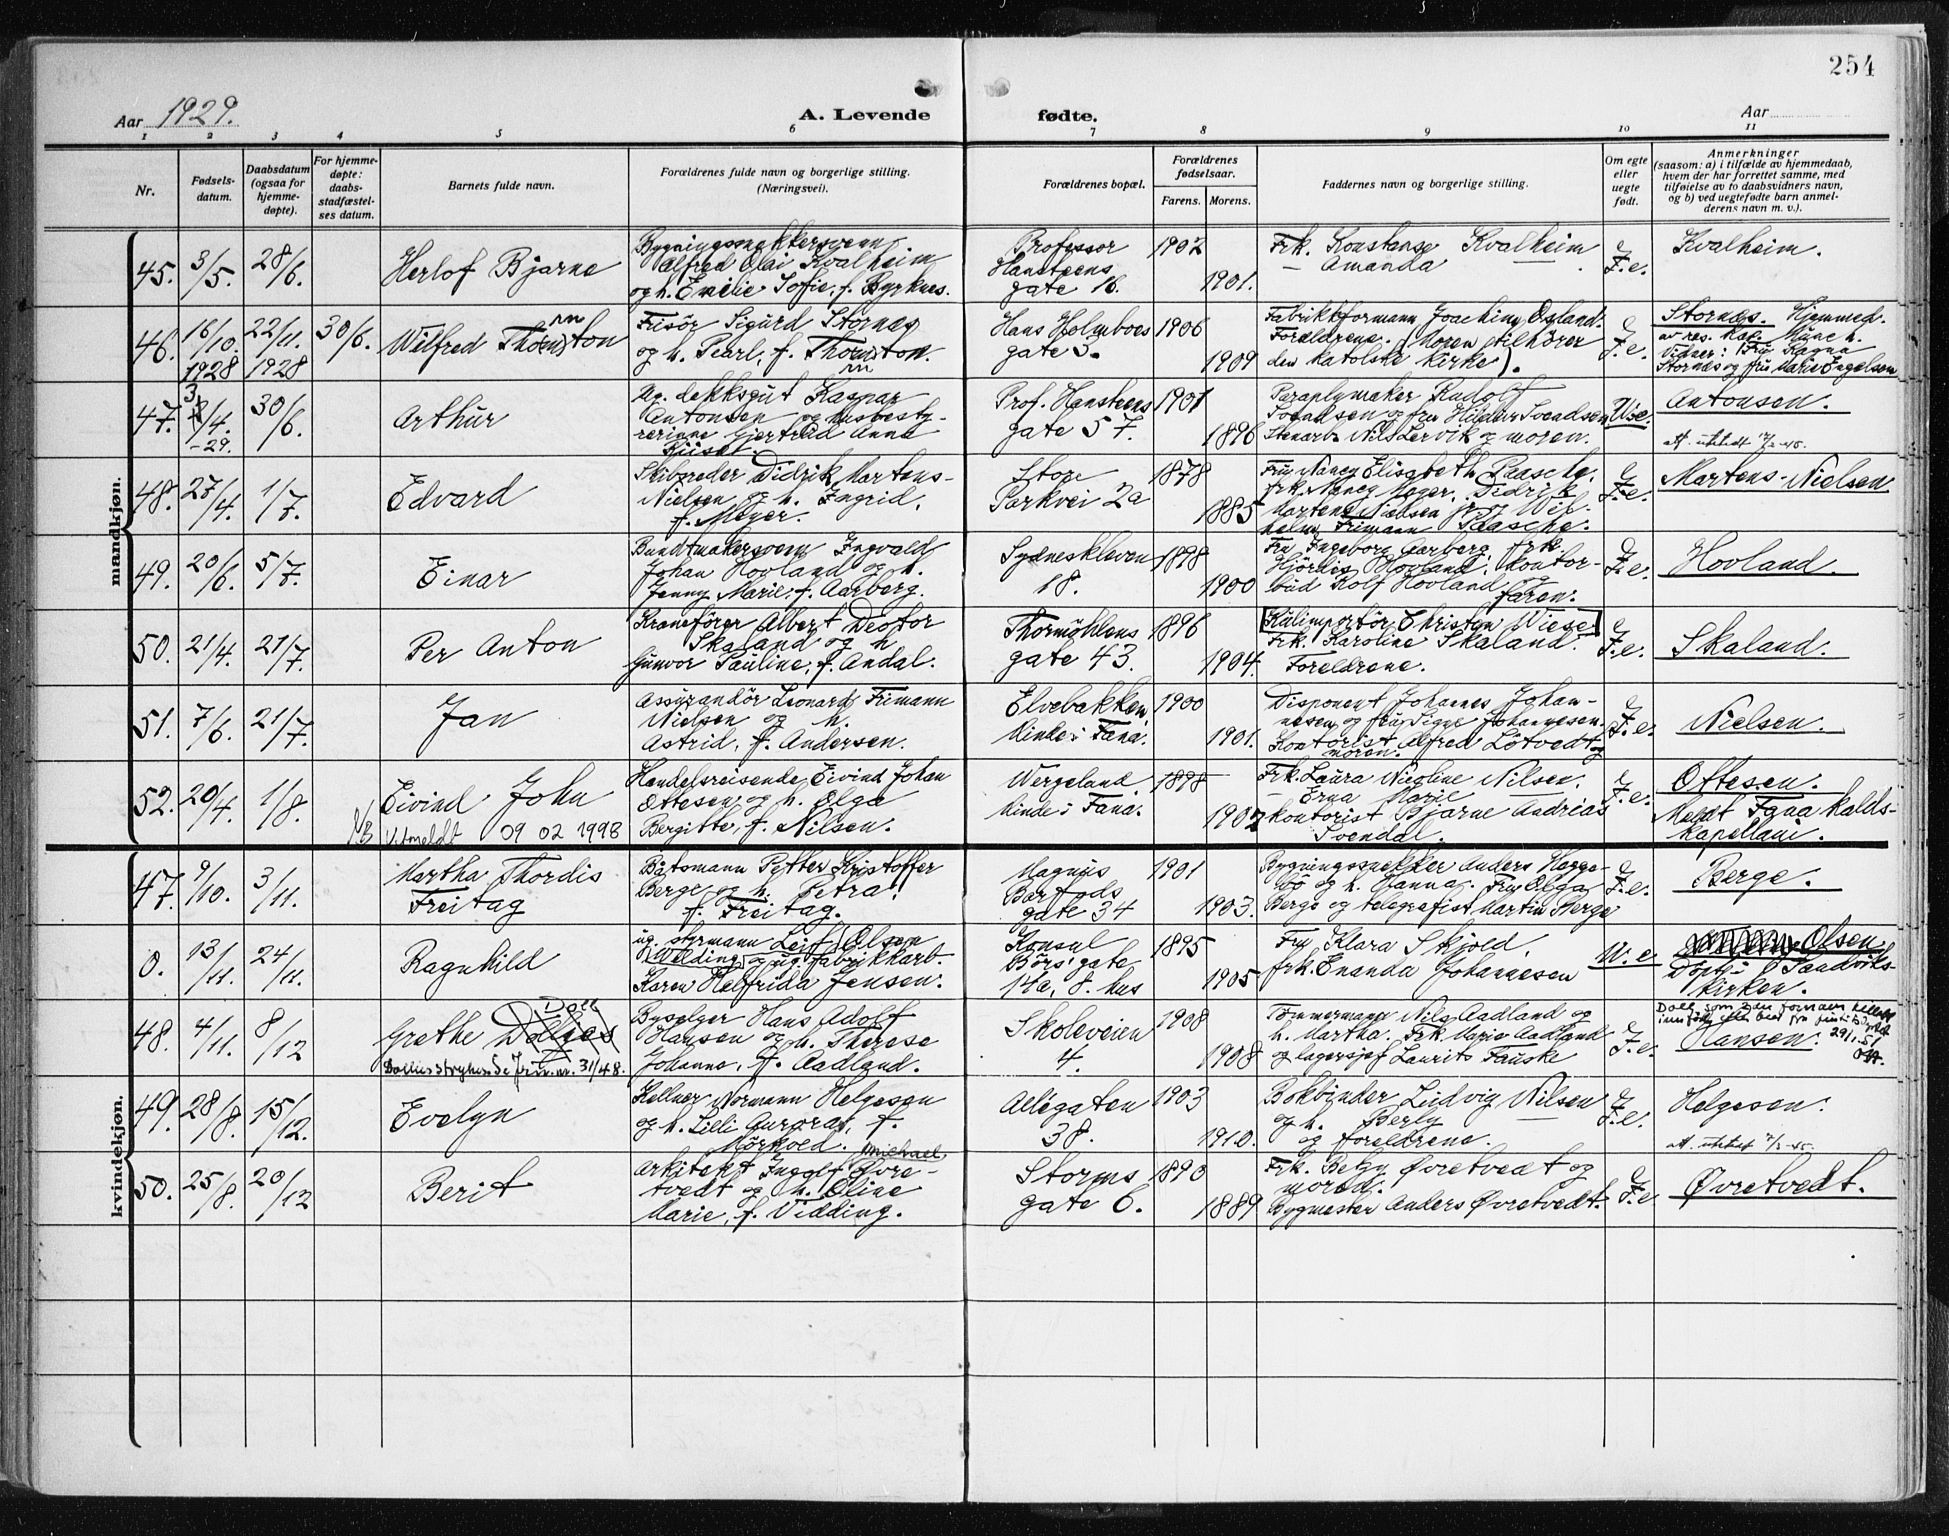 254
Aar 1929.
A. Levende
fødte.
Aar
1 2 3 4 5 6 7 8 9 10 11
Nr.
Fødsels-
datum.
Daabsdatum
(ogsaa for
hjemme-
døpte).
For hjemme-
døpte:
daabs-
stadfæstel-
ses datum.
Barnets fulde navn.
Forældrenes fulde navn og borgerlige stilling.
(Næringsvei).
Forældrenes bopæl.
Forældrenes
fødselsaar.
Farens. Morens.
Faddernes navn og borgerlige stilling.
Om egte
eller
uegte
født.
Anmerkninger
(saasom: a) i tilfælde av hjemmedaab,
hvem der har forrettet samme, med
tilføielse av to daabsvidners navn,
og b) ved uegtefødte barn anmel-
derens navn m. v.).
mandkjøn.
45. 3/5. 28/6.
Herlof Bjarne
Bygningssnekkersvenn
Alfred Olai Kvalheim
og h. Emilie Sofie, f. Byrknes.
Professor
Hansteens
gate 16.
1902
1901.
Frk. Konstanse Kvalheim
— Amanda —
F.e.
Kvalheim.
46. 16/10. 1928 22/11. 1928 30/6.
Wilfred Thornton
Frisör Sigurd Stornæs
og h. Pearl, f. Thornton.
Hans Holmboes
gate 3.
1906
1909
Fabrikkformann Joachim Osland.
Foreldrene. (Moren tilhörer
den katolske kirke).
F.e.
Stornæs. Hjemmed.
av res. kap. Mune h.
Vidner: Fru Ragna
Stornæs og fru Marie Engelsen
47. 3/4. -29. 30/6.
Arthur
Ug. dekksgut Kaspar
Antonsen og husbesty-
rerinne Gjertrud Anna
Prof. Hansteens
gate 57.
1901
1896
Paraplymaker Rudolf
Svendsen og fru Hildur Svendsen
Stenarb. Nils Lervik og moren.
U.e.
Antonsen.
48. 27/4. 1/7.
Edvard
Skibsreder Didrik Martens-
Nielsen og h. Ingrid,
f. Meyer.
Store
Parkvei 2a
1878
1885
Fru Nancy Elisabeth Paasche.
frk. Nancy Meyer. Didrik
Martens Nielsen jr. og Wil-
helm Frimann Paasche.
F.e.
Martens-Nielsen
49. 20/6. 5/7.
Einar
Buntmakersvenn Ingvald
Johan Hovland og h.
Jenny Marie, f. Aarberg.
Sydneskleven
18.
1898
1900
Fru Ingeborg Aarberg. frk.
Hjördis Hovland. Kontor-
bud Rolf Hovland og
faren.
F.e.
Hovland.
50. 21/4. 21/7.
Per Anton
Kranefører Albert
Skaland og h.
Gunvor Pauline, f. Andal.
Thormøhlens
gate 43.
1896
1904.
[Kulimportör Christen Wiese]
Frk. Karoline Skaland.
Foreldrene.
F.e.
Skaland.
51. 7/6. 21/7.
Jan
Assurandör Leonard Frimann
Nielsen og h.
Astrid, f. Andersen.
Elvebakken,
Minde i Fana.
1900
1901.
Disponent Johannes Johan-
nesen og fru Signe Johannesen.
Kontorist Alfred Lötvedt og
moren.
F.e.
Nielsen.
52. 20/4. 1/8.
Eivind John
NB Utmeldt 09 02 1998
Handelsreisende Eivind Johan
Ottesen og h. Olga
Bergitte, f. Nilsen.
Wergeland.
Minde i Fana.
1898
1902
Frk. Laura Nicoline Nilsen.
— Erna Marie —
kontorist Bjarne Andreas
Svendal.
F.e.
Ottesen.
Meldt Fana kalds-
kapellani.
kvindekjøn.
47. 9/10. 3/11.
Martha Thordis
Freitag
Båtsmann Petter Kristoffer
Berge og h. Petra,
f. Freitag.
Magnus
Barfods
gate 34
1901
1903.
Bygningssnekker Anders Hagge-
bö og h. Hanna. Fru Olga
Berge og telegrafist Martin Berge
F.e.
Berge.
0. 13/11. 24/11.
Ragnhild
ug. styrmann Leif Olsen
Wilding og ug. fabrikkarb.
Karen Helfrida Jensen.
Konsul
Börs' gate
14a, 8. hus
1895
1905
Fru Klara Skjold.
frk. Enanda Johannesen
U.e.
Olsen
Döpt i Sandviks-
kirken.
48. 4/11. 8/12
Grethe Doll
31/48.
Byselger Hans Adolf
Hansen og h. Therese
Johanne, f. Aadland.
Skoleveien
4.
1908
1908
Tömmermann Nils Aadland og
h. Martha. Frk. Marie Aadland
og lagersjef Laurits Fauske
F.e.
Hansen. 29/1.51
49. 28/8. 15/12.
Evelyn
Kellner Normann Helgesen
og h. Lilli Aurora, f.
Mörkved.
Allégaten
38.
1903
1910.
Bokbinder Ludvig Nilsen
og h. Berly
og foreldrene.
F.e.
Helgesen.
50. 25/8. 20/12
Berit
Michael
Arkitekt Ingolf Øvre-
tvedt og h. Oline
Marie, f. Vidding.
Storms
gate 6.
1890
1889
Frk. Betzy Øvretvedt og
moren.
Bygmester Anders Øvretvedt.
F.e.
Øvretvedt.